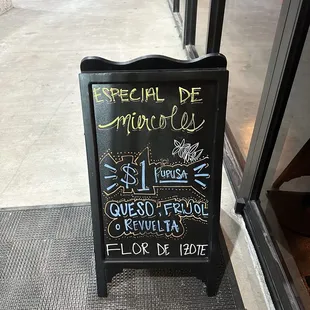 ESPECIAL DE
miercoles
$1 PUPUSA
QUESO, FRIJOL
o REVUELTA
FLOR DE IZOTE